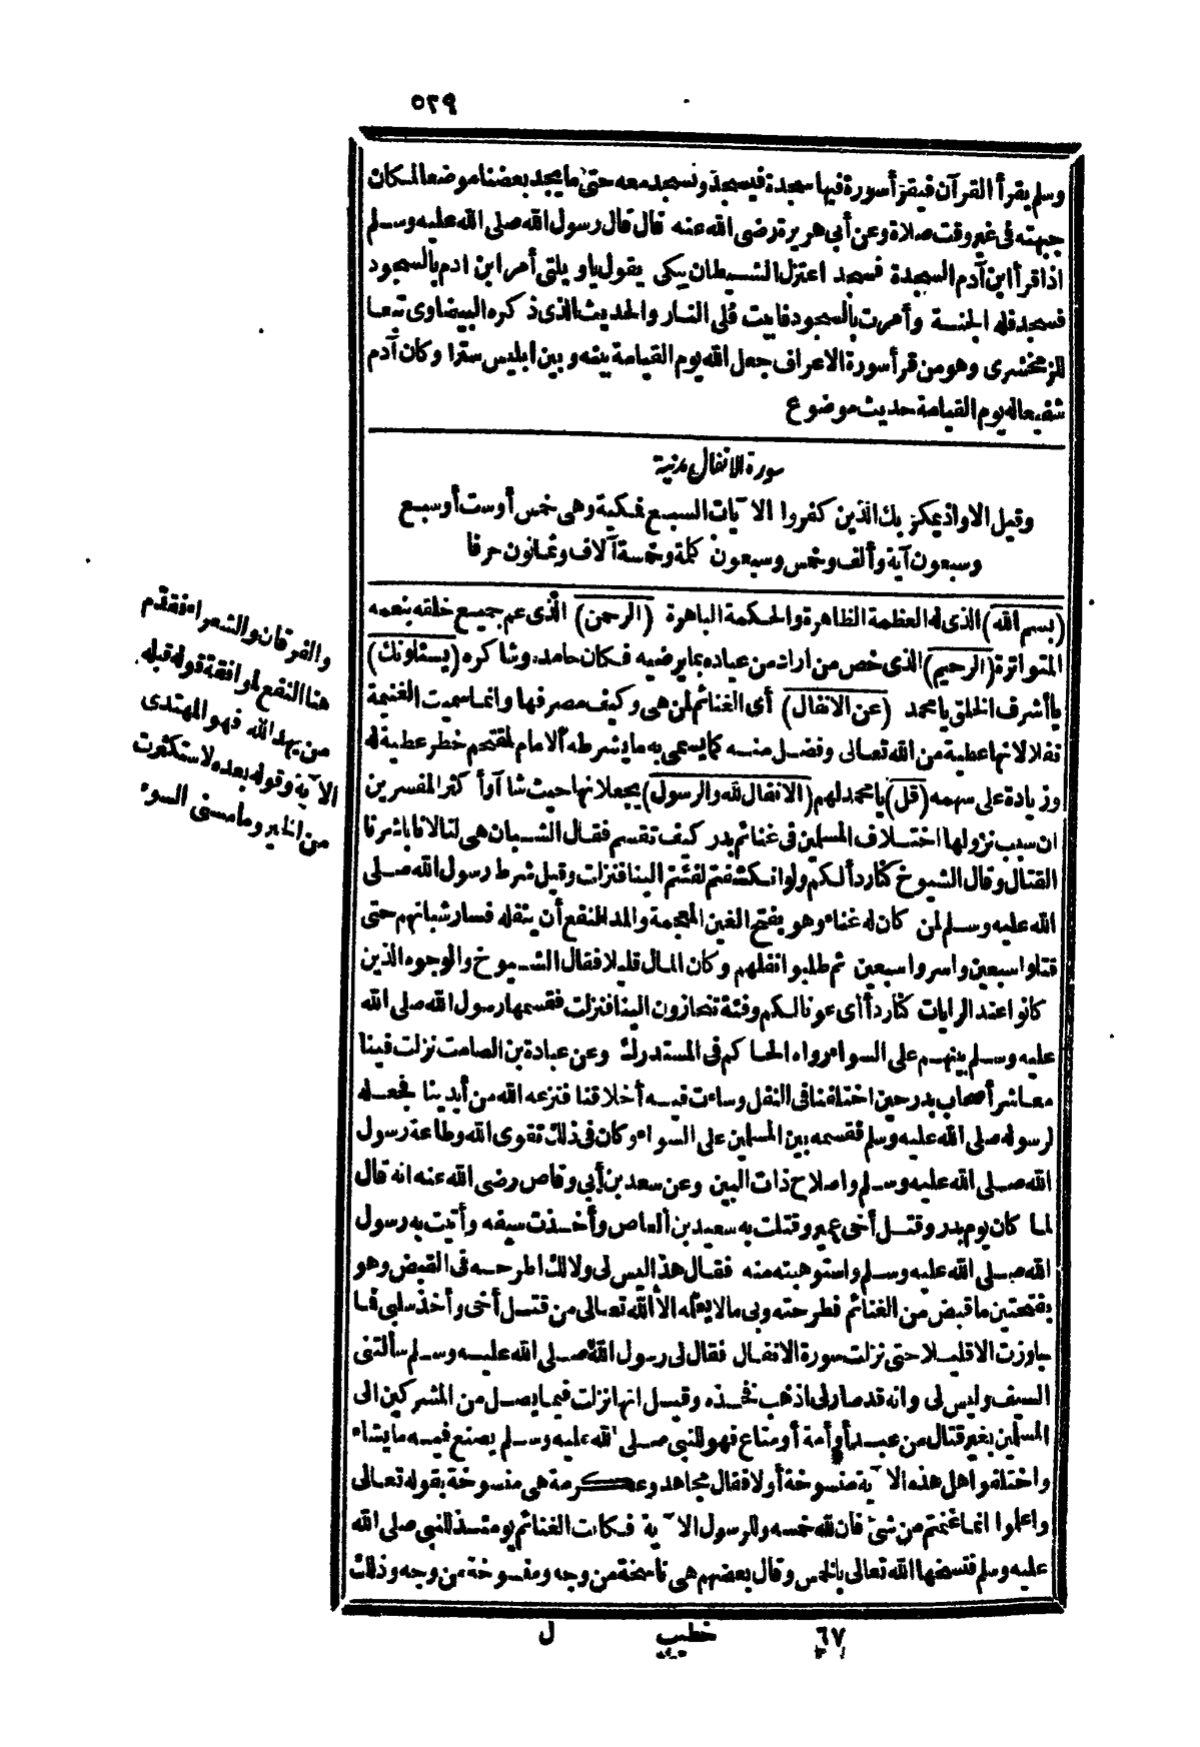 ٥٢٩
وسلم يقرأ القرآن فيقرأ سورة فيها سجدة فيسجد ونسجد معه حتى ما يجد بعضنا موضعا لمكان
جبهته في غير وقت صلاة وعن أبي هريرة رضى الله عنه قال قال رسول الله صلى الله عليه وسلم
اذا قرأ ابن آدم السجدة فسجد اعتزل الشيطان يبكى يقول ياويلتى أمر ابن ادم بالسجود
فسجد فله الجنة وأمرت بالسجود فابيت فلى النار والحديث الذى ذكره البيضاوى تبعا
للزمخشرى وهو من قرأ سورة الاعراف جعل الله يوم القيامة بينه وبين ابليس سترا وكان آدم
شفيعا له يوم القيامة حديث موضوع
سورة الانفال مدنية
وقيل الا واذ يمكر بك الذين كفروا الآيات السبع فمكية وهى خمس أو ست أو سبع
وسبعون آية وألف وخمس وسبعون كلمة وخمسة آلاف وثمانون حرفا
(بسم الله) الذى له العظمة الظاهرة والحكمة الباهرة (الرحمن) الذى عم جميع خلقه بنعمه
المتواترة (الرحيم) الذى خص من اراد من عباده بما يرضيه فكان حامده وشاكره (يسئلونك)
يا أشرف الخلق يا محمد (عن الانفال) أى الغنائم لمن هى وكيف مصرفها وانما سميت الغنيمة
نفلا لانها عطية من الله تعالى وفضل منه كما يسمى به ما يشرطه الامام لمقتحم خطر عطية له
وزيادة على سهمه (قل) يا محمد لهم (الانفال لله والرسول) يجعلانها حيث شاآ وأكثر المفسرين
ان سبب نزولها اختلاف المسلمين فى غنائم بدر كيف تقسم فقال الشبان هى لنا لانا باشرنا
القتال وقال الشيوخ كنا ردأ لكم ولو انكشفتم لفئتم الينا فنزلت وقيل شرط رسول الله صلى
الله عليه وسلم لمن كان له غناء وهو بفتح الغين المعجمة والمد النفع أن ينفله فسار شبانهم حتى
قتلوا سبعين واسروا سبعين ثم طلبوا نفلهم وكان المال قليلا فقال الشيوخ والوجوه الذين
كانوا عند الرايات كنا ردأ أى عونا لكم وفئة تنحازون الينا فنزلت فقسمها رسول الله صلى الله
عليه وسلم بينهم على السواء رواه الحاكم فى المستدرك وعن عبادة بن الصامت نزلت فينا
معاشر أصحاب بدر حين اختلفنا فى النفل وساءت فيه أخلاقنا فنزعه الله من أيدينا فجعله
لرسوله صلى الله عليه وسلم فقسمه بين المسلمين على السواء وكان فى ذلك تقوى الله وطاعة رسول
الله صلى الله عليه وسلم واصلاح ذات البين وعن سعد بن أبى وقاص رضى الله عنه انه قال
لما كان يوم بدر وقتل أخى عمير وقتلت به سعيد بن العاص وأخذت سيفه وأتيت به رسول
الله صلى الله عليه وسلم واستوهبته منه فقال هذا ليس لى ولا لك اطرحه فى القبض وهو
بفتحتين ما قبض من الغنائم فطرحته وبى ما لا يعلمه الا الله تعالى من قتل أخى وأخذ سلبى فما
جاوزت الا قليلا حتى نزلت سورة الانفال فقال لى رسول الله صلى الله عليه وسلم سألتنى
السيف وليس لى وانه قد صار لى اذهب فخذه وقيل انها نزلت فيما يصل من المشركين الى
المسلمين بغير قتال من عبد أو أمة أو متاع فهو للنبى صلى الله عليه وسلم يصنع فيه ما يشاء
واختلفوا هل هذه الآية منسوخة أولا فقال مجاهد وعكرمة هى منسوخة بقوله تعالى
واعلموا انما غنمتم من شئ فان لله خمسه وللرسول الآية فكانت الغنائم يومئذ للنبى صلى الله
عليه وسلم فنسخها الله تعالى بالخمس وقال بعضهم هى ناسخة من وجه ومنسوخة من وجه وذلك
٦٧ خطيب ل
والفرقان والشعراء فقدم
هنا النفع لموافقة قوله قبله
من يهد الله فهو المهتدى
الآية وقوله بعده لاستكثرت
من الخير وما مسنى السوء